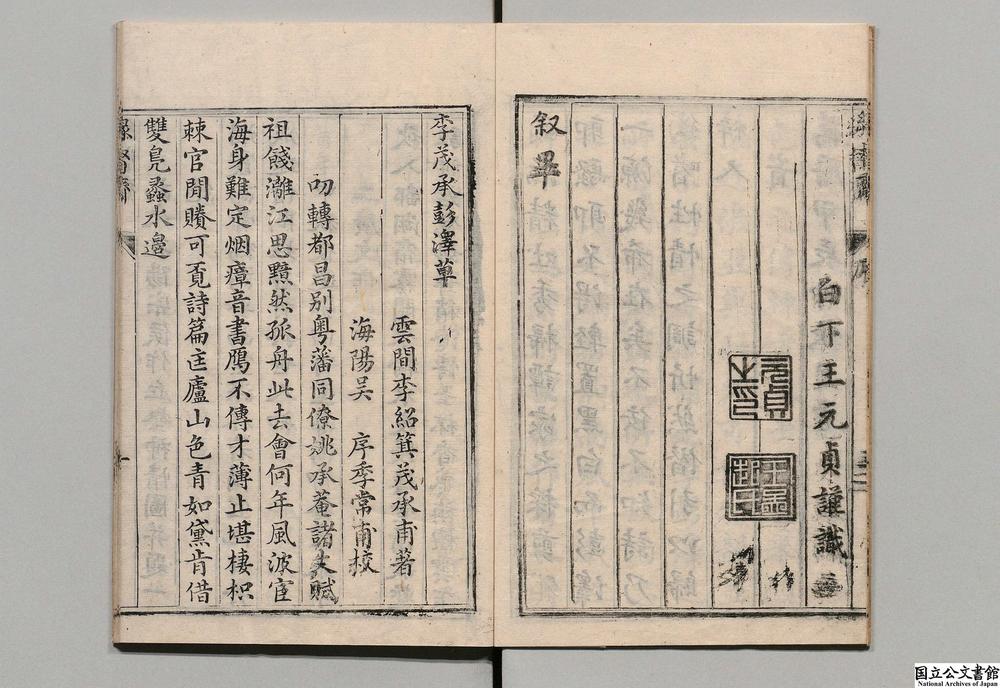 白下王元貞謹識
元貞之印
王孟起氏
叙畢
李茂承彭澤草
雲間李紹箕茂承甫著
海陽吳　序季常甫校
叨轉都昌别粤藩同僚姚承菴諸丈賦
祖餞灕江思黯然孤舟此去會何年風波宦
海身難定烟瘴音書鴈不傳才薄止堪棲枳
棘官閒賸可覔詩篇匡廬山色青如黛肯借
雙鳧蠡水邊
国立公文書館
National Archives of Japan